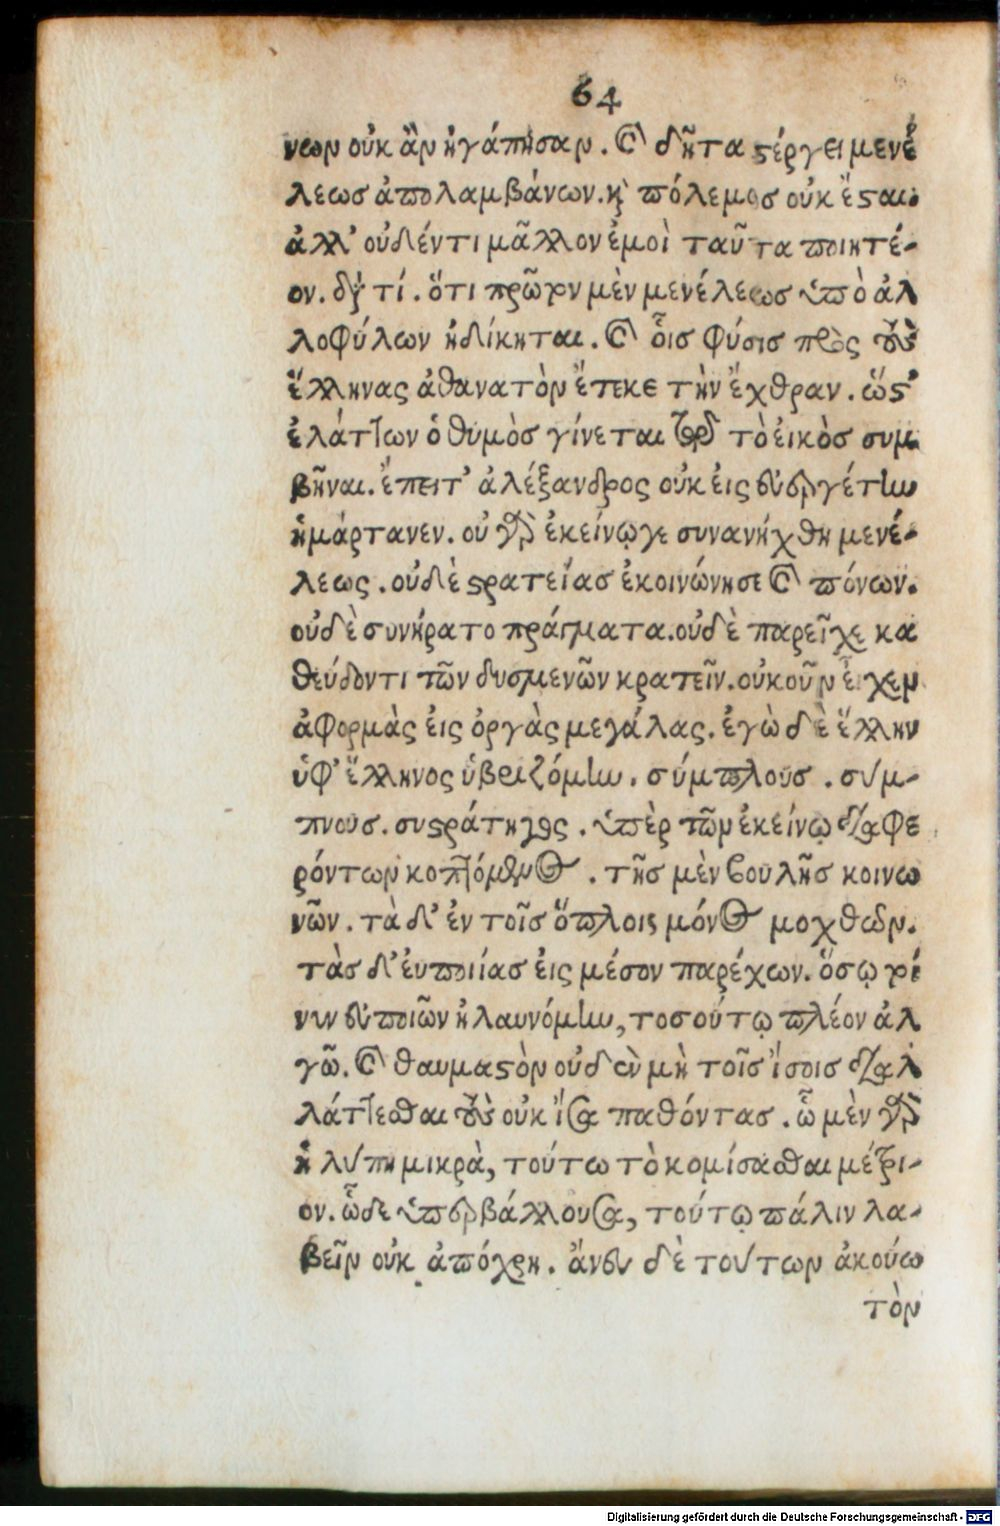 64
νεων οὐκ ἂν ἠγάπησαν. καὶ δῆτα στέργει μενέ
λεωσ ἀπολαμβάνων. καὶ πόλεμοσ οὐκ ἔσται.
ἀλλ' οὐδέν τι μᾶλλον ἐμοὶ ταῦτα ποιητέ-
ον. διὰ τί. ὅτι πρῶτον μὲν μενέλεωσ ὑπὸ ἀλ
λοφύλων ἠδίκηται. καὶ οἷσ φύσισ πρὸς τοὺς
ἕλληνας ἀθανατὸν ἔτεκε τὴν ἔχθραν. ὥστ'
ἐλάττων ὁ θυμὸσ γίνεται παρὰ τὸ εἰκὸσ συμ
βῆναι. ἔπειτ' ἀλέξανδρος οὐκ εἰς εὐεργέτην
ἡμάρτανεν. οὐ γὰρ ἐκείνῳ γε συνανήχθη μενέ-
λεως. οὐδὲ στρατείασ ἐκοινώνησε καὶ πόνων.
οὐδὲ συνήρατο πράγματα. οὐδὲ παρεῖχε κα
θεύδοντι τῶν δυσμενῶν κρατεῖν. οὐκοῦν εἶχεν
ἀφορμὰς εἰς ὀργὰς μεγάλας. ἐγὼ δὲ ἕλλην
ὑφ' ἕλληνος ὑβριζόμην. σύμπλουσ. σύμ-
πνουσ. συστράτηγος. ὑπὲρ τῶν ἐκείνῳ διαφε
ρόντων κοπτόμενος. τῆσ μὲν βουλῆσ κοινω
νῶν. τὰ δ' ἐν τοῖσ ὅπλοις μόνος μοχθῶν.
τὰσ δ' εὐποιίασ εἰς μέσον παρέχων. ὅσῳ τοί
νυν εὐποιῶν ἠλαυνόμην, τοσούτῳ πλέον ἀλ
γῶ. καὶ θαυμαστὸν οὐδὲν μὴ τοῖσ ἴσοισ διαλ
λάττεσθαι τοὺς οὐκ ἴσα παθόντασ. ᾧ μὲν γὰρ
ἡ λύπη μικρὰ, τούτω τὸ κομίσασθαι μέτρι-
ον. ᾧ δε ὑπερβάλλουσα, τούτῳ πάλιν λα-
βεῖν οὐκ ἀπόχρη. ἄνευ δὲ τούτων ἀκούω
τὸν
Digitalisierung gefördert durch die Deutsche Forschungsgemeinschaft - DFG